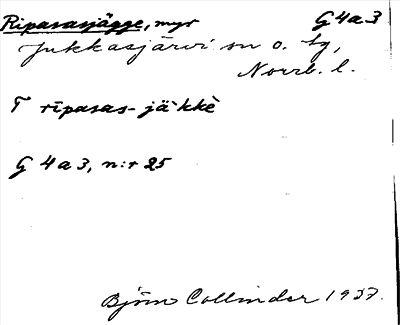 Ripasasjägge, myr G4a3
Jukkasjärvi sn o. tg,
Norrb. l.
T ripasas-jä·kkè
G 4a3, n:r 25
Björn Collinder 1937.